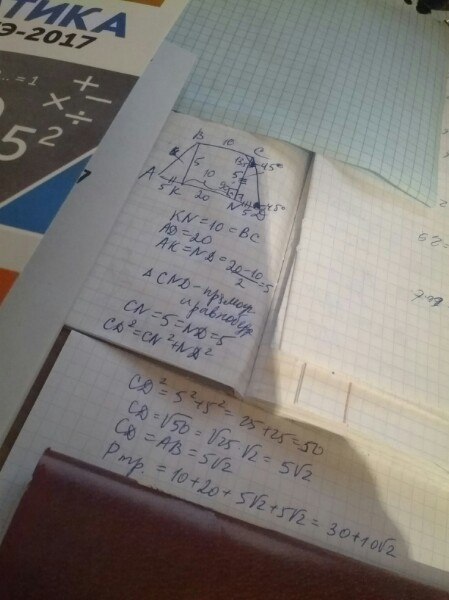 АТИКА
Э-2017
...=1
5²
B 10 C
5 5 45°
10 90°
A 5 K 20 N 5 45°
KN=10=BC
AD=20
AK=ND=20-10/2=5
Δ CND-прямоуг.
и равнобедр
CN=5=ND=5
CD²=CN²+ND²
CD²=5²+5²=25+25=50
CD=√50=√25·√2=5√2
CD=AB=5√2
Pтр.=10+20+5√2+5√2=30+10√2